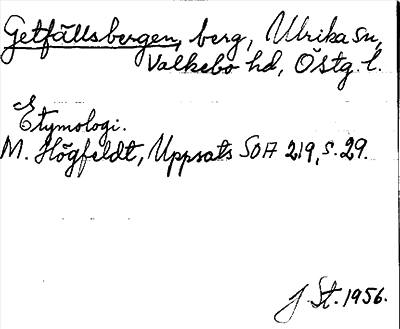 Getfällsbergen, berg, Ulrika sn,
Valkebo hd, Östg. l.
Etymologi.
M. Högfeldt, Uppsats SOA 219, s. 29.
J. St. 1956.